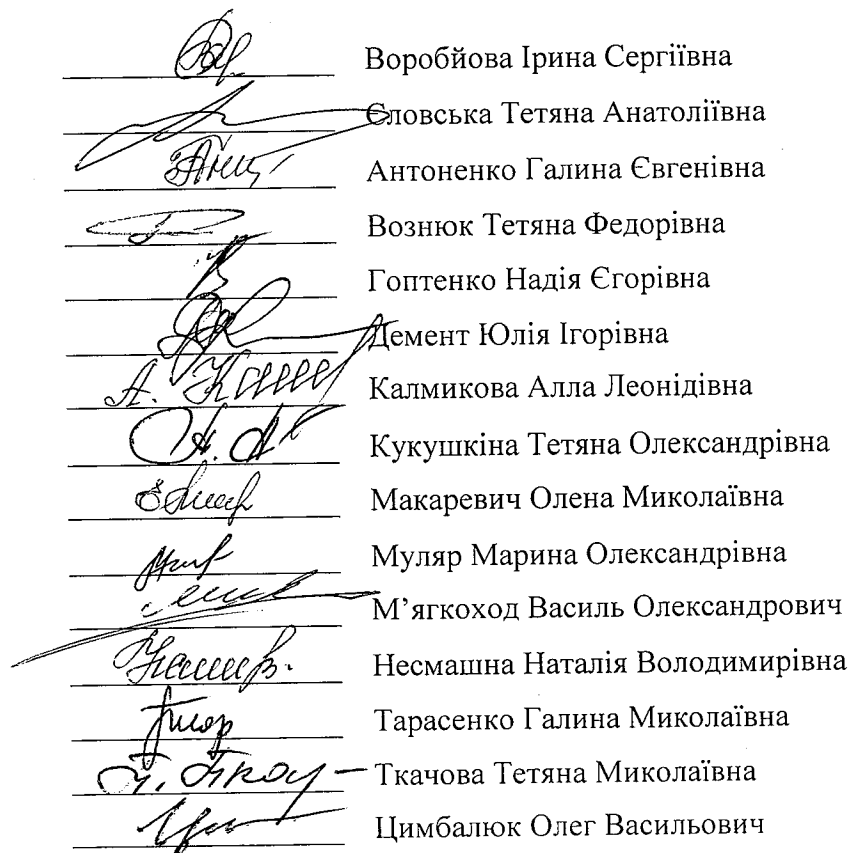 Воробйова Ірина Сергіївна
Єловська Тетяна Анатоліївна
Антоненко Галина Євгенівна
Вознюк Тетяна Федорівна
Гоптенко Надія Єгорівна
Демент Юлія Ігорівна
Калмикова Алла Леонідівна
Кукушкіна Тетяна Олександрівна
Макаревич Олена Миколаївна
Муляр Марина Олександрівна
М’ягкоход Василь Олександрович
Несмашна Наталія Володимирівна
Тарасенко Галина Миколаївна
Ткачова Тетяна Миколаївна
Цимбалюк Олег Васильович